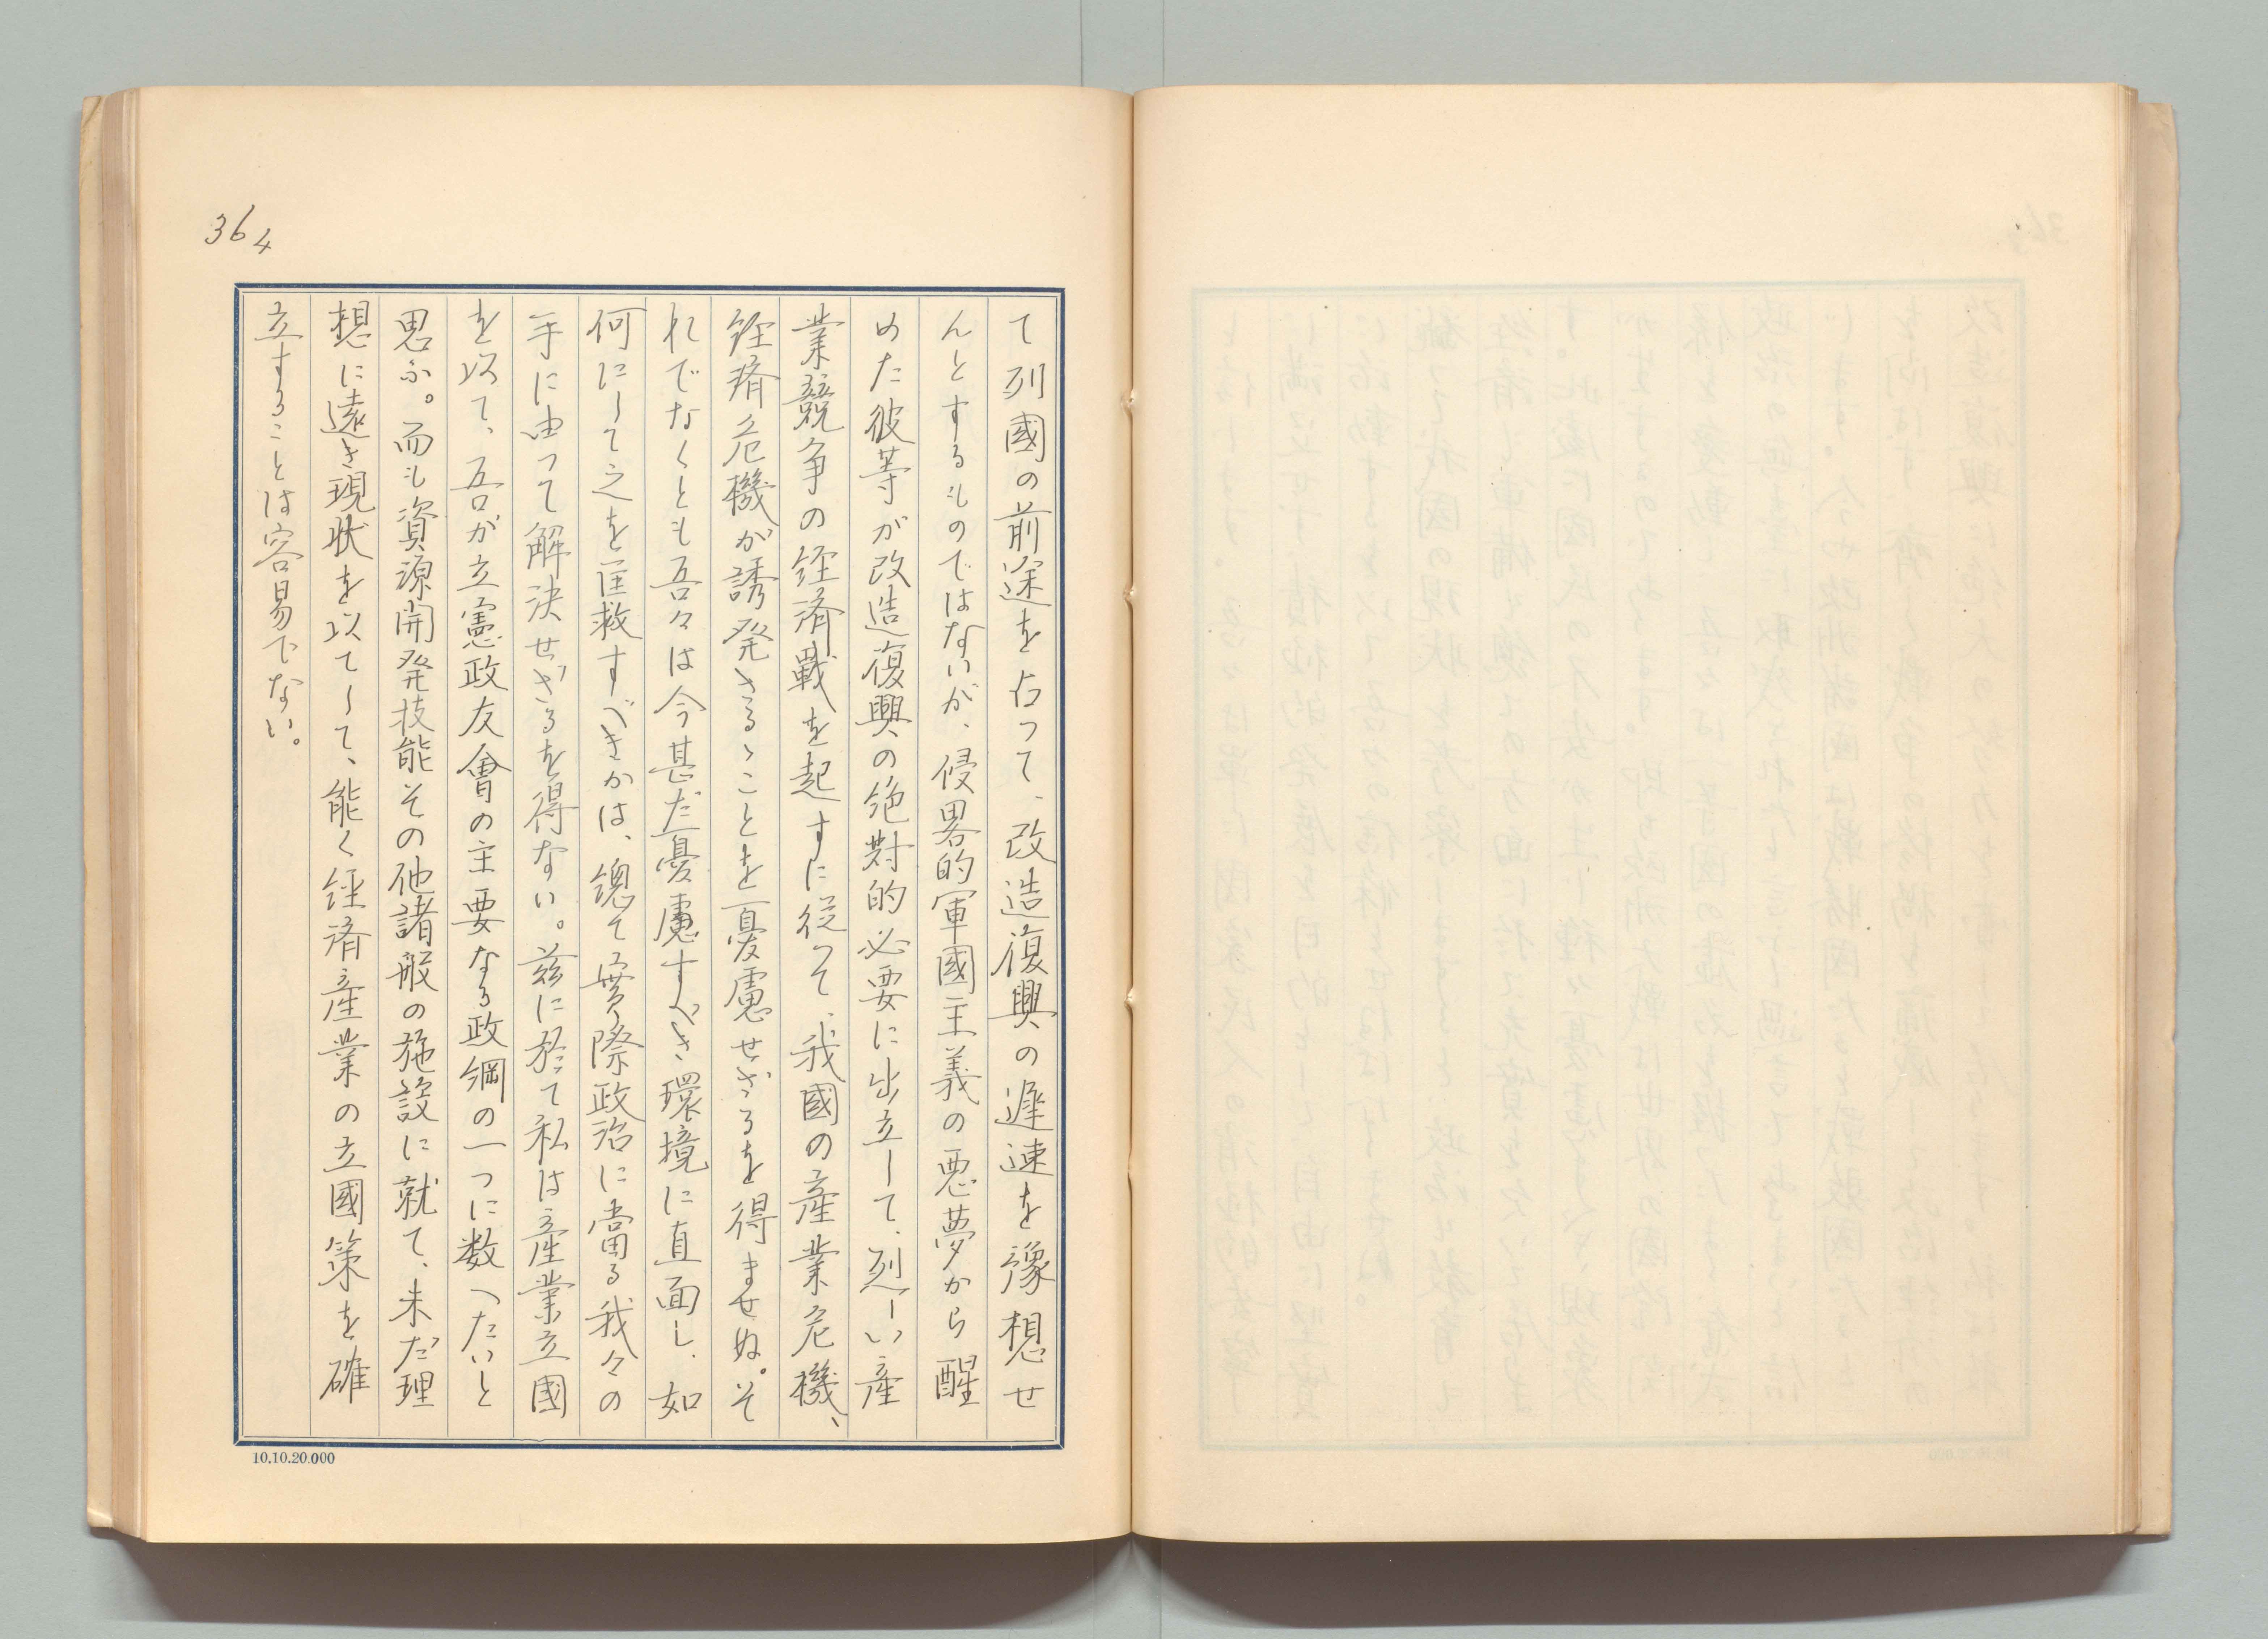 364
て列國の前途を占つて、改造復興の遲速を豫想せ
んとするものではないが、侵畧的軍國主義の悪夢から醒
めた彼等が改造復興の絶對的必要に出立して、烈しい産
業競争の経済戰を起すに従つて、我國の産業危機、
経済危機が誘発さるゝことを憂慮せざるを得ませぬ。そ
れでなくとも吾々は今甚だ憂慮すべき環境に直面し、如
何にして之を匡救すべきかは、總て實際政治に當る我々の
手に由つて解決せざるを得ない。茲に於て私は産業立國
を以て、吾が立憲政友會の主要なる政綱の一つに数へたいと
思ふ。而も資源開発技能その他諸般の施設に就て、未だ理
想に遠き現狀を以てして、能く経済産業の立國策を確
立することは容易でない。
10.10.20.000